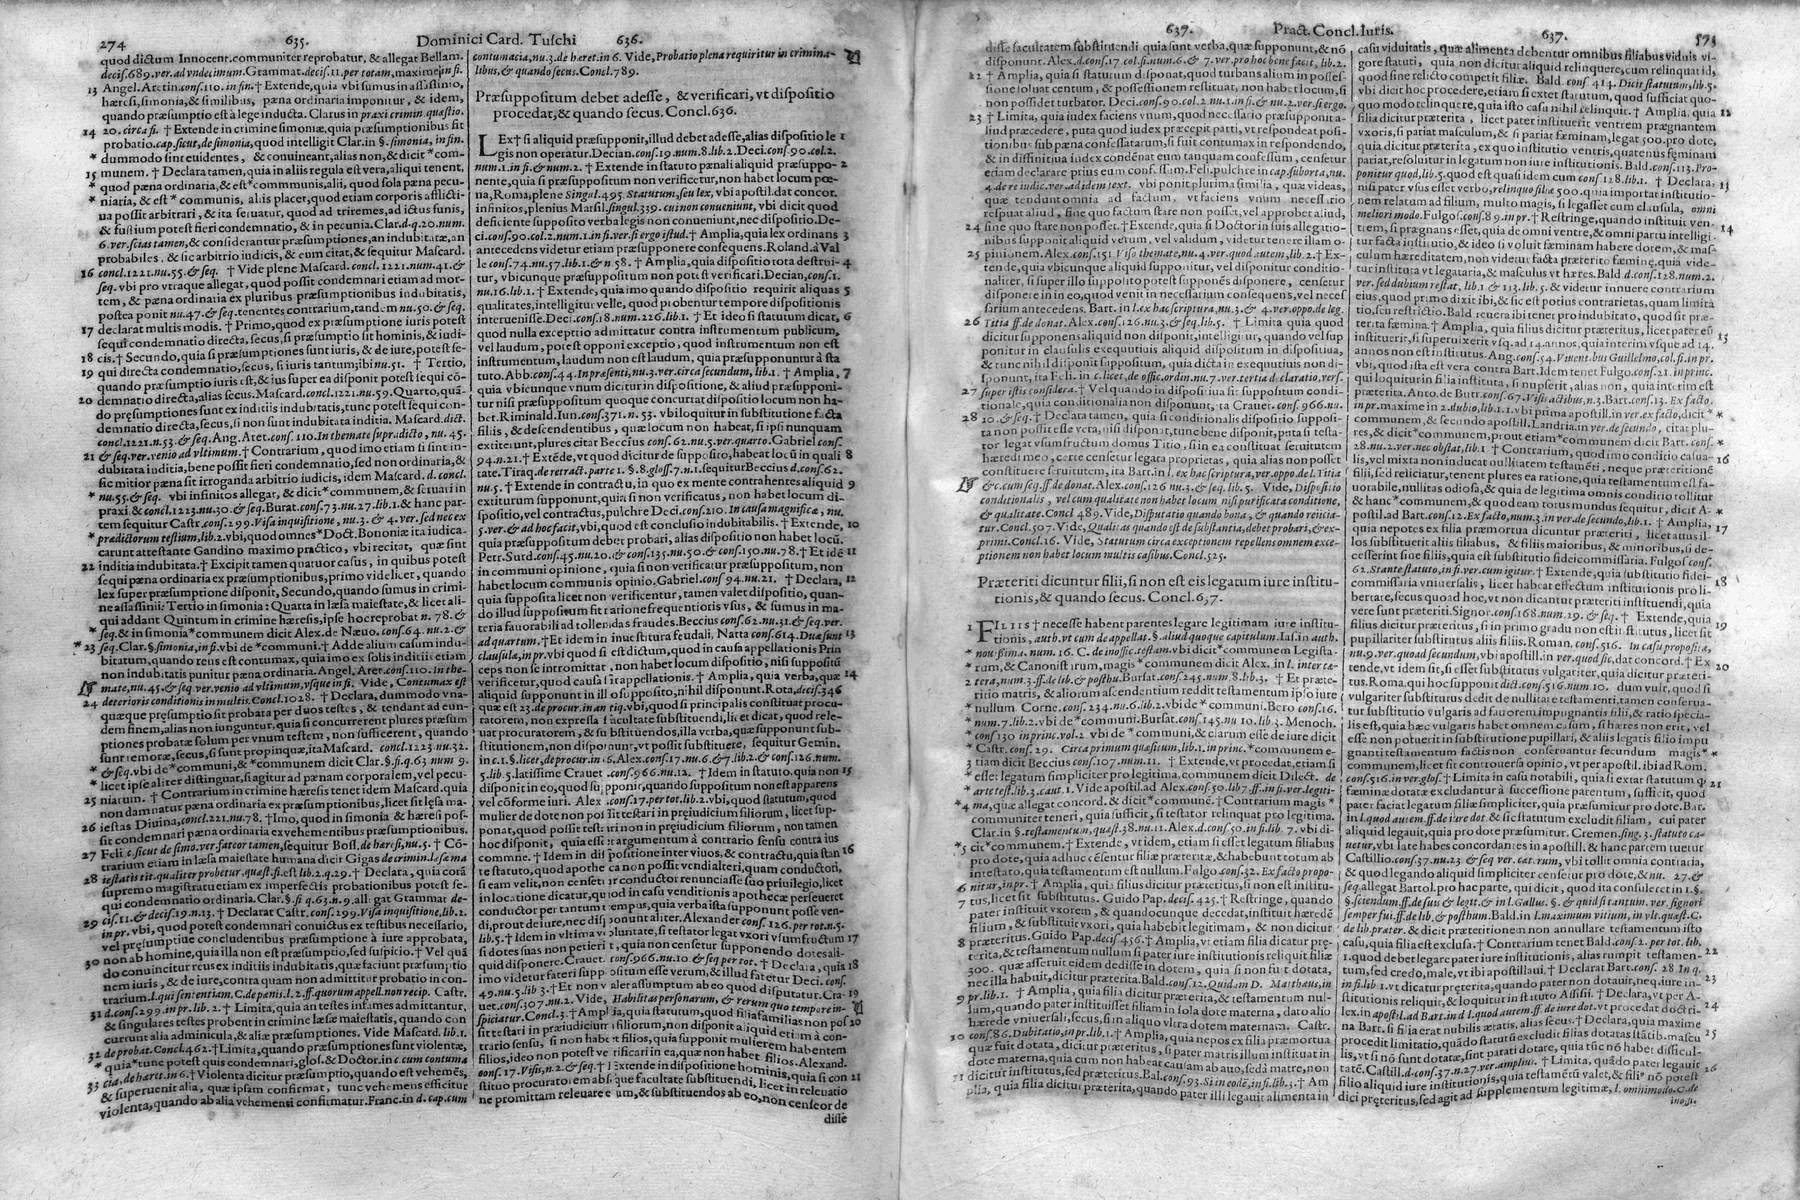 274 635. Dominici Card. Tuschi 636.
quod dictum Innocent.communiter reprobatur, & allegat Bellam.
decis.689.ver.ad vndecimum.Grammat.decis.11.per totam,maxime in fi.
13 Angel.Aretin.cons.110.in fin.† Extende,quia vbi sumus in assassinio,
hæresi,simonia,& similibus, pæna ordinaria imponitur, & idem,
quando præsumptio est à lege inducta. Clarus in praxi crimin.quæstio.
14 20.circa fi. † Extende in crimine simoniæ,quia præsumptionibus fit
probatio.cap.sicut,de simonia,quod intelligit Clar.in §.simonia,in fin.
* dummodo sint euidentes, & conuincant,alias non,& dicit*com-
15 munem. † Declara tamen,quia in aliis regula est vera,aliqui tenent,
* quod pæna ordinaria,& est*communis,alii, quod sola pæna pecu-
* niaria, & est * communis, aliis placet,quod etiam corporis afflicti-
ua possit arbitrari, & ita seruatur, quod ad triremes,ad ictus funis,
& fustium potest fieri condemnatio, & in pecunia. Clar.d.q.20.num.
6.ver.scias tamen,& considerantur præsumptiones,an indubitatæ,an
probabiles, & sic arbitrio iudicis, & cum citat,& sequitur Mascard.
16 concl.1221.nu.55.& seq. † Vide plene Mascard. concl.1221.num.41.&
seq. vbi pro vtraque allegat, quod possit condemnari etiam ad mor-
tem, & pæna ordinaria ex pluribus præsumptionibus indubitatis,
postea ponit nu.47.& seq.tenentes contrarium,tandem nu.50.& seq.
17 declarat multis modis. † Primo,quod ex præsumptione iuris potest
sequi condemnatio directa, secus,si præsumptio sit hominis,& iudi-
18 cis.† Secundo,quia si præsumptiones sunt iuris, & de iure,potest se-
19 qui directa condemnatio,secus, si iuris tantum;ibi nu.51. † Tertio,
quando præsumptio iuris est,& ius super ea disponit potest sequi cō-
20 demnatio directa,alias secus.Mascard.concl.1221.nu.59.Quarto,quā-
do pręsumptiones sunt ex inditiis indubitatis,tunc potest sequi con-
demnatio directa,secus,si non sunt indubitata inditia. Mascard.dict.
concl.1221.n.53.& seq.Ang.Aret.cons.110.In themate supradicto, nu.45.
21 & seq.ver.venio ad vltimum. † Contrarium, quod imo etiam si sint in-
dubitata inditia,bene possit fieri condemnatio,sed non ordinaria,&
sic mitior pæna sit irroganda arbitrio iudicis, idem Mascard.d.concl.
* nu.55.& seq. vbi infinitos allegat, & dicit*communem,& seruari in
praxi.& concl.1223.nu.30.& seq.Bursat.cons.73.nu.27.lib.1.& hanc par-
tem sequitur Castr.cons.299.Visa inquisitione,nu.3.& 4.ver.sed nec ex
* prædictorum testium,lib.2.vbi,quod omnes*Doct.Bononiæ ita iudica-
carunt attestante Gandino maximo practico, vbi recitat, quæ sint
22 inditia indubitata.† Excipit tamen quatuor casus, in quibus potest
sequi pæna ordinaria ex præsumptionibus,primo videlicet, quando
lex super præsumptione disponit, Secundo,quando sumus in crimi-
ne assassinii: Tertio in simonia: Quarta in læsa maiestate,& licet ali-
qui addant Quintum in crimine hæresis,ipse hoc reprobat n. 78.&
* seq.& in simonia*communem dicit Alex.de Næuo.cons.64.nu.2.&
*23 seq.Clar.§.simonia,in fi.vbi de * communi.† Adde alium casum indu-
bitatum,quando reus est contumax,quia imo ex solis inditiis etiam
non indubitatis punitur pæna ordinaria.Angel.Aret.cons.110.In the-
mate,nu.45.& seq.ver.venio ad vltimum,vsque in fi. Vide, Contumax est
24 deterioris conditionis in multis.Concl.1028. † Declara,dummodo vna-
quæque pręsumptio sit probata per duos testes, & tendant ad eun-
dem finem,alias non iunguntur,quia si concurrerent plures præsum
ptiones probatæ solum per vnum testem, non sufficerent, quando
sunt remotæ,secus,si sunt propinquæ,ita Mascard. concl.1223.nu.32.
* & seq.vbi de*communi,&*communem dicit Clar.§.fi.q.63 num 9.
* licet ipse aliter distinguat,si agitur ad pænam corporalem,vel pecu-
25 niariam. † Contrarium in crimine hæresis tenet idem Mascard.quia
non damnatur pæna ordinaria ex præsumptionibus,licet sit lęsa ma-
26 iestas Diuina,concl.221.nu.78. †Imo,quod in simonia & hæresi pos-
sit condemnari pæna ordinaria ex vehementibus præsumptionibus.
27 Feli.c.sicut de simo.ver.fateor tamen,sequitur Boss.de hæresi,nu.5.† Cō-
trarium etiam in læsa maiestate humana dicit Gigas de crimin.læsæ ma
28 iestatis tit.qualiter probetur.quæst.fi.est lib.2.q.29.† Declara, quia corā
supremo magistratu etiam ex imperfectis probationibus potest se-
qui condemnatio ordinaria.Clar.§.fi q.63.n.9.allegat Grammat de-
29 cis.11.& decis.19.n.13. † Declarat Castr.cons.299.Visa inquisitione,lib.2.
in pr.vbi, quod potest condemnari conuictus ex testibus necessario,
vel pręsumptiue concludentibus præsumptione à iure approbata,
30 non ab homine,quia illa non est præsumptio,sed suspicio. † Vel quā
do conuincitur reus ex inditiis indubitatis,quæ faciunt præsumptio
nem iuris, & de iure,contra quam non admittitur probatio in con-
trarium.l.qui sententiam.C.de pænis.l.2.ff.quorum appell.non recip. Castr.
31 d.cons.299.in pr.lib.2. † Limita, quia an testes infames admittantur,
& singulares testes probent in crimine læsæ maiestatis, quando con
currunt alia adminicula,& aliæ præsumptiones. Vide Mascard. lib.1.
32 de probat.Concl.462.†Limita,quando præsumptiones sunt violentæ,
* quia*tunc potest quis condemnari,glos.& Doctor.in c.cum contuma
33 cia,de hæret.in 6.†Violenta dicitur præsumptio,quando est vehemēs,
& superuenit alia, quæ ipsam confirmat, tunc vehemens efficitur
violenta,quando ab alia vehementi confirmatur.Franc.in d. cap.cum
contumacia,nu.3.de hæret.in 6. Vide,Probatio plena requiritur in crimina-
libus,& quando secus.Concl.789.
Præsuppositum debet adesse, & verificari, vt dispositio
procedat,& quando secus. Concl.636.
LEx † si aliquid præsupponit,illud debet adesse,alias dispositio le 1
gis non operatur.Decian.cons.19.num.8.lib.2.Deci.cons.90.col.2.
num.1.in fi.& num.2. † Extende in statuto pænali aliquid præsuppo- 2
nente,quia si præsuppositum non verificetur,non habet locum pœ-
na,Roma,plene Singul.495.Statutum,seu lex, vbi apostil.dat concor.
infinitos,plenius Matsil.singul.339.cui non conueniunt,vbi dicit quod
deficiente supposito verba legis non conueniunt,nec dispositio.De-
ci.cons.90.col.2.num.1.in fi.ver.si ergo istud.† Amplia,quia lex ordinans 3
antecedens videtur etiam præsupponere consequens.Roland.à Val
le cons.74.nu.57.lib.1.& n 58. † Amplia,quia dispositio tota destrui- 4
tur, vbicunque præsuppositum non potest verificari.Decian.cons.1.
nu.16.lib.1.† Extende,quia imo quando dispositio requirit aliquas 5
qualitates,intelligitur velle, quod probentur tempore dispositionis
interuenisse.Deci.cons.18.num.226.lib.1. † Et ideo si statutum dicat, 6
quod nulla exceptio admittatur contra instrumentum publicum,
vel laudum, potest opponi exceptio, quod instrumentum non est
instrumentum, laudum non est laudum, quia præsupponuntur à sta
tuto.Abb.cons.44.In præsenti,nu.3.ver.circa secundum, lib.1. † Amplia, 7
quia vbicunque vnum dicitur in dispositione, & aliud præsupponi-
tur nisi præsuppositum quoque concurrat dispositio locum non ha-
bet.Riminald.Iun.cons.371.n.53. vbi loquitur in substitutione facta
filiis, & descendentibus, quæ locum non habeat, si ipsi nunquam
extiterunt,plures citat Beccius cons.62.nu.5.ver.quarto.Gabriel cons.
94.n.21. † Extēde,vt quod dicitur de supposito,habeat locū in quali 8
tate. Tiraq.de retract.parte 1. §.8.gloss.7.n.1.sequitur Beccius d.cons.62.
nu.5.† Extende in contractu,in quo ex mente contrahentes aliquid 9
extiturum supponunt,quia si non verificatur, non habet locum di-
spositio,vel contractus,pulchre Deci.cons.210. In causa magnificæ, nu.
5.ver.& ad hoc facit,vbi,quod est conclusio indubitabilis. † Extende, 10
quia præsuppositum debet probari,alias dispositio non habet locū.
Petr.Surd.cons.45.nu.20.& cons.135.nu.50.& cons.150.nu.78.† Et idē 11
in communi opinione, quia si non verificatur præsuppositum,non
habet locum communis opinio.Gabriel.cons 94.nu.21. † Declara, 12
quia supposita licet non verificentur, tamen valet dispositio, quan-
do illud suppositum fit ratione frequentioris vsus, & sumus in ma-
teria fauorabili ad tollendas fraudes.Beccius cons.62.nu.31.& seq.ver.
ad quartum.†Et idem in inuestitura feudali, Natta cons.614.Duæ sunt 13
clausulæ,in pr.vbi quod si est dictum,quod in causa appellationis Prin
ceps non se intromittat, non habet locum dispositio, nisi suppositū
verificetur,quod causa sit appellationis.† Amplia, quia verba,quæ 14
aliquid supponunt in illo supposito,nihil disponunt.Rota,decis.346
quæ est 23 de procur.in antiq.vbi,quod si principalis constituat procu-
ratorem,non expressa facultate substituendi,licet dicat, quod rele-
uat procuratorem,& substituendos,illa verba,quæ supponunt sub-
stitutionem,non disponunt,vt possit substituere, sequitur Gemin.
in c.1.§.licet,de procur.in 6.Alex.cons.17.nu.6.& 7.lib.2.& cons.126.num.
5.lib.5.latissime Crauet.cons.966.nu.12. † Idem in statuto.quia non 15
disponit in eo,quod supponit,quando suppositum non est apparens
vel cōforme iuri. Alex.cons.17.per tot.lib.2.vbi,quod statutum,quod
mulier de dote non possit testari in præiudicium filiorum, licet sup-
ponat,quod possit testari non in pręiudicium filiorum, non tamen
hoc disponit, quia esset argumentum à contrario sensu contra ius
comme. † Idem in dispositione inter viuos,& contractu,quia stan 16
te statuto,quod apotheca non possit vendi alteri,quam conductori,
si eam velit,non censetur conductor renunciasse suo priuilegio,licet
in locatione dicatur,quod in casu venditionis apothecæ perseueret
conductor per tantum tempus, quia verba ista supponunt posse ven-
di,prout de iure,nec disponunt aliter.Alexander cons.126.per tot.n.5.
lib.5.† Idem in vltima voluntate,si testator legat vxori vsumfructum 17
si dotes suas non petierit, quia non censetur supponendo dotes ali-
quid disponere.Crauet. cons.966.nu.10.& seq per tot. † Declara, quia 18
imo videtur fateri suppositum esse verum,& illud fatetur Deci. cons.
49.nu.5.lib 3.†Et non valet assumptum ab eo quod disputatur.Cra- 19
uet.cons.307.nu.2. Vide, Habilitas personarum, & rerum quo tempore in-
spiciatur.Concl.3.† Amplia,quia statutum, quod filia familias non pos 20
sit testari in præiudicium filiorum,non disponit aliquid etiam à con-
trario sensu, si non habet filios, quia supponit mulierem habentem
filios,ideo non potest verificari in ea,quæ non habet filios.Alexand.
cons.17.Visis,n.2.&seq.† Extende in dispositione hominis,quia si con 21
stituo procuratorem absque facultate substituendi, licet in releuatio
ne promittam releuare eum,& substituendos ab eo,non censeor de
disse
637. Pract. Concl. Iuris. 637. 573
disse facultatem substituendi quia sunt verba,quæ supponunt,& nō
disponunt.Alex.d.cons.17.col.fi.num.6.& 7.ver pro hoc bene facit,lib.2.
22 † Amplia, quia si statutum disponat,quod turbans alium in posses-
sione soluat centum, & possessionem restituat, non habet locum,si
non possidet turbator. Deci.cons.90.col.2.nu.1.in fi.& nu.2.ver.si ergo.
23 † Limita, quia iudex faciens vnum, quod necessario præsupponit a-
liud præcedere, puta quod iudex præcepit parti, vt respondeat posi-
tionibus sub pæna confessatarum,si fuit contumax in respondendo,
& in diffinitiua index condēnat eum tanquam confessum, censetur
etiam declarare prius eum confessum.Feli.pulchre in cap.suborta,nu.
4.de re iudic.ver.ad idem text. vbi ponit plurima similia, quæ videas,
quæ tendunt omnia ad factum, vt faciens vnum necessario
respuat aliud, sine quo factum stare non posset,vel approbet aliud,
24 sine quo stare non posset.† Extende,quia si Doctor in suis allegatio-
nibus supponit aliquid verum, vel validum, videtur tenere illam o-
25 pinionem.Alex.cons.151.Viso themate,nu.4.ver.quod autem, lib.2.† Ex-
tende,quia vbicunque aliquid supponitur, vel disponitur conditio-
naliter, si super illo supposito potest supponēs disponere, censetur
disponere in in eo,quod venit in necessarium consequens,vel neces
sarium antecedens. Bart. in l.ex hac scriptura,nu.3.& 4.ver.oppo.de leg.
26 Titia ff.de donat.Alex.cons.126.nu.3.& seq.lib.5. † Limita quia quod
dicitur supponens aliquid non disponit,intelligitur, quando vel sup
ponitur in clausulis exequutiuis aliquid dispositum in dispositiua,
& tunc nihil disponit suppositum, quia dicta in exequutiuis non di-
sponunt, ita Feli. in c.licet,de offic,ordin.nu.7.ver.tertia declaratio,vers.
27 super istis considera.† Vel quando in dispositiua sit suppositum condi-
tionale,quia conditionalia non disponunt, ita Crauet.cons.966.nu.
28 10.& seq.† Declara tamen, quia si conditionalis dispositio supposi-
ta non possit esse vera, nisi disponat,tunc bene disponit,puta si testa-
tor legat vsumfructum domus Titio, si in ea constituat seruitutem
hæredi meo, certe censetur legata proprietas, quia alias non posset
constituere seruitutem, ita Bart.in l.ex hac scriptura,ver.oppo.del Titia
&c.cum seq.ff.de donat.Alex.cons.126.nu.3.& seq.lib.5. Vide, Dispositio
conditionalis, vel cum qualitate non habet locum nisi purificata conditione,
& qualitate. Concl 489. Vide,Disputatio quando bona, & quando reiicia-
tur.Concl.507.Vide,Qualitas quando est de substantia,debet probari,&ex-
primi.Concl.16. Vide, Statutum circa exceptionem repellens omnem exce-
ptionem non habet locum multis casibus.Concl.525.
Præteriti dicuntur filii, si non est eis legatum iure institu-
tionis,& quando secus. Concl.637.
1 FILIIS † necesse habent parentes legare legitimam iure institu-
tionis, auth.vt cum de appellat.§.aliud quoque capitulum.Ias.in auth.
nouissima. num.16. C. de inoffic.testam.vbi dicit*communem Legista-
rum,& Canonistarum,magis*communem dicit Alex. in l. inter cæ-
2 tera,num.3.ff.de lib.& posthu.Bursat.cons.245.num.8.lib.3. † Et præte-
ritio matris, & aliorum ascendentium reddit testamentum ipso iure
* nullum. Corne. cons.234.nu.6.lib.2.vbi de*communi.Bero cons.16.
* num.7.lib.2.vbi de*communi.Bursat.cons.145.nu 10.lib.3. Menoch.
* cons 130 in princ.vol.2. vbi de*communi,& clarum esse de iure dicit
* Castr. cons.29. Circa primum quæsitum, lib.1.in princ.*communem e-
3 tiam dicit Beccius cons.107.num.11. † Extende, vt procedat,etiam si
* esset legatum simpliciter pro legitima,communem dicit Dilect. de
* arte test.lib.3.caut.1. Vide apostil.ad Alex.cons.50.lib.7.ff.in fi.ver.legiti-
*4 ma,quæ allegat concord.& dicit*communē.†Contrarium magis*
communiter teneri, quia sufficit, si testator relinquat pro legitima.
Clar.in §.testamentum,quæst.38.nu.11.Alex.d.cons.50.in fi.lib 7. vbi di-
*5 cit*communem.† Extende, vt idem,etiam si esset legatum filiabus
pro dote,quia adhuc cēsentur filiæ præteritæ,& habebunt totum ab
intestato,quia testamentum est nullum. Fulgo.cons.32. Ex facto propo-
6 nitur,in pr.† Amplia, quia filius dicitur præteritus,si non est institu-
7 tus,licet substitutus. Guido Pap.decis.425.† Restringe, quando
pater instituit vxorem, & quandocunque decedat,instituit hæredē
filium, & substituit vxori,quia habebit legitimam, & non dicitur
8 præteritus.Guido Pap.decis 456.† Amplia,vt etiam filia dicatur prę-
terita,& testamentum nullum si pater iure institutionis reliquit filiæ
300. quæ asseruit eidem dedisse in dotem, quia si non fuit dotata,
nec illa habuit,dicitur præterita. Bald.cons.12.Quidam D. Matthæus,in
9 pr.lib.1. † Amplia, quia filia dicitur præterita,& testamentum nul-
lum,quando pater instituisset filiam in sola dote materna, dato alio
hærede vniuersali,secus,si in aliquo vltra dotem maternam. Castr.
10 cons.86.Dubitatio,in pr.lib.1.† Amplia, quia nepos ex filia præmortua
quæ fuit dotata, dicitur præteritus, si pater matris illum instituat in
dote materna,quia cum non habeat causam ab auo,sed à matre,non
11 dicitur institutus,sed præteritus.Bal.cons.93.Si in eodē,in fi.lib.3.† Am
plia, quia filia dicitur præterita,quando pater illi legauit alimenta in
casu viduitatis, quæ alimenta debentur omnibus filiabus viduis vi-
gore statuti, quia non dicitur aliquid relinquere,cum relinquat id,
quod sine relicto competit filiæ. Bald.cons.414.Dicit statutum,lib.5.
vbi dicit hoc procedere,etiam si extet statutum, quod sufficiat quo-
quo modo relinquere,quia isto casu nihil relinquit. † Amplia quia 12
filia dicitur præterita, licet pater instituerit ventrem prægnantem
vxoris,si pariat masculum,& si pariat fæminam,legat 500.pro dote,
quia dicitur præterita,ex quo institutio ventris,quatenus fęminam
pariat,resoluitur in legatum non iure institutionis.Bald.cons.113.Pro-
ponitur quod,lib.5.quod est quasi idem cum cons 128.lib.1. † Declara, 13
nisi pater vsus esset verbo,relinquo filiæ 500.quia importat institutio-
nem relatum ad filium, multo magis,si legasset cum clausula, omni
meliori modo.Fulgo.cons.89.in pr.† Restringe,quando instituit ven- 14
trem,si prægnans esset,quia de omni ventre,& omni partu intelligi-
tur facta institutio,& ideo si voluit fæminam habere dotem,& mas-
culum hæreditatem, non videtur facta præterito fæmine,quia vide-
tur instituta vt legataria,& masculus vt hæres.Bald d.cons.128.num.2.
ver.sed dubium restat, lib.1 & 113.lib.5. & videtur innuere contrarium
eius,quod primo dixit ibi,& sic est potius contrarietas,quam limita
tio,seu restrictio.Bald reuera ibi tenet pro indubitato,quod sit præ-
terita fæmina.† Amplia, quia filius dicitur præteritus,licet pater eū 15
instituerit,si superuixerit vsq. ad 14.annos,quia interim vsque ad 14.
annos non est institutus.Ang.cons.54.Viuentibus Guillelmo,col.fi.in pr.
vbi,quod ista est vera contra Bart.Idem tenet Fulgo.cons.21.in princ.
qui loquitur in filia instituta, si nupserit,alias non, quia interim est
præterita. Anto.de Butr.cons.67.Visis actibus,n.13.Bart.cons.13. Ex facto
in pr.maxime in 2.dubio,lib.1.vbi prima apostill.in ver.ex facto,dicit*
communem, & secundo apostill.Landria.in ver.de secundo, citat plu-
res,& dicit*communem,prout etiam*communem dicit Bart. cons.
28.nu.2.ver.nec obstat,lib.1 † Contrarium, quod imo conditio casua- 16
lis,vel mixta non inducat nullitatem testamēti, neque præteritionē
filii,sed reiiciatur,tenent plures ea ratione, quia testamentum est fa-
uorabile, nullitas odiosa,& quia de legitima omnis conditio tollitur
& hanc*communem,& quod eam totus mundus sequitur,dicit A-
postil.ad Bart.cons.12.Ex facto,num.3.in ver.de secundo,lib.1. † Amplia, 17
quia nepotes ex filia præmortua dicuntur præteriti, licet auus il-
los substituerit aliis filiabus, & filiis maioribus,& minoribus,si de-
cesserint sine filiis,quia est substitutio fideicommissaria. Fulgos cons.
62.Stante statuto,in fi.ver.cum igitur.† Extende,quia substitutio fidei-
commissaria vniuersalis, licet habeat effectum institutionis pro li- 18
bertate,secus quoad hoc,vt non dicantur præteriti instituendi,quia
vere sunt præteriti. Signor.cons.168.num.19.& seq. † Extende, quia
filius dicitur præteritus,si in primo gradu non est institutus,licet sit 19
pupillariter substitutus aliis filiis.Roman.cons.516. In casu proposito,
nu.9.ver.quoad secundum,vbi apostill.in ver.quod sic,dat concord.† Ex
tende,vt idem sit,si esset substitutus vulgariter,quia dicitur præteri- 20
tus.Roma.qui hoc supponit dict.cons.516.num 10. dum vult,quod si
vulgariter substitutus dedit de nullitate testamenti,tamen conserua-
tur substitutio vulgaris ad fauorem impugnantis filii,& ratio specia-
lis est,quia hæc vulgaris habet omnem casum, si hæres non erit, vel
esse non potuerit in substitutione pupillari, & aliis legatis filio impu
gnanti testamentum factis non conseruantur secundum magis *
communem,licet sit controuersa opinio, vt per apostil. ibi ad Rom.
cons.516.in ver.glos.† Limita in casu notabili, quia si extat statutum q, 21
fæminæ dotatæ excludantur à successione parentum, sufficit, quod
pater faciat legatum filiæ simpliciter, quia præsumitur pro dote. Bar.
in l.quod autem.ff.de iure dot.& sic statutum excludit filiam, cui pater
aliquid legauit,quia pro dote præsumitur. Cremen.sing.3.statuto ca-
uetur,vbi late habes concordantes in apostil. & hanc partem tuetur
Castillio.cons.37.nu.23.& seq ver.cæterum, vbi tollit omnia contraria,
& quod legando aliquid simpliciter censetur pro dote,& nu. 27.&
seq.allegat Bartol.pro hac parte, qui dicit, quod ita consuleret in l.§.
§.sciendum.ff.de suis & legit.& in l.Gallus. §. & quid si tantum.ver.signori
semper fui.ff.de lib.& posthum.Bald.in l.maximum vitium, in vlt.quæst.C.
de lib.præter.& dicit præteritionem non annullare testamentum isto
casu,quia filia est exclusa.† Contrarium tenet Bald.cons.2.per tot.lib. 22
1.quod debet legare pater iure institutionis, alias rumpit testamen-
tum,sed credo,male,vt ibi apostillaui. † Declarat Bart.cons.28 In q. 23
in fi.lib 1.vt dicatur præterita,quando pater non dotauit,neq.iure in-
stitutionis reliquit,& loquitur in statuto Assisii. †Declara,vt per A- 24
lex.in apostil.ad Bart.in d l.quod autem.ff.de iure dot.vt procedat doctri-
na Bart.si filia erat nubilis ætatis, alias secus.† Declara,quia maxime 25
procedit limitatio, quādo statutū excludit filias dotatas statib.mascu
lis,vt si nō sunt dotatæ,sint parati dotare, quia tūc nō habet difficul-
tatē.Castill.d.cons.37.n.27.ver.amplius. † Limita, quādo pater legauit 26
filio aliquid iure institutionis,quia testamētū valet,& filiꝰ nō potest
dici præteritus,sed agit ad supplementum legitimæ, l. omnimodo.C.de
inoffi.